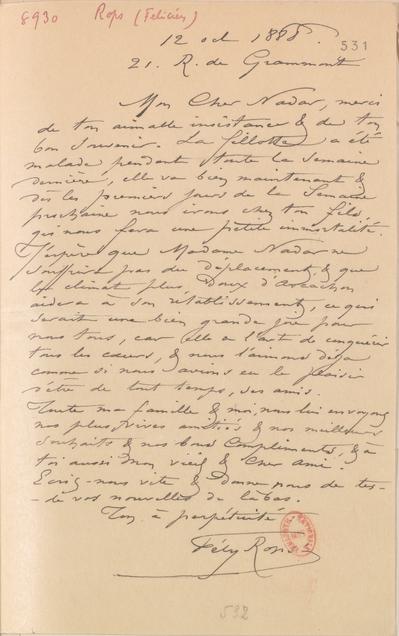 8930 Rops (Félicien)
12 oct 1888.
531
21. R. de Grammont
Mon Cher Nadar, merci
de ton aimable insistance & de ton
bon souvenir. La fillotte a été
malade pendant toute la semaine
dernière, elle va bien maintenant &
dès les premiers jours de la Semaine
prochaine nous irons chez ton fils,
qui nous fera une petite immortalité.
J'espère que Madame Nadar ne
souffrira pas du déplacement, & que
le climat plus doux d'Arcachon
aidera à son rétablissement, ce qui
serait une bien grande joie pour
nous tous, car elle a l'art de conquérir
tous les cœurs, & nous l'aimons déjà
comme si nous avions eu le plaisir
d'être de tout temps, ses amis.
Toute ma famille & moi, nous lui envoyons
nos plus vives amitiés & nos meilleurs
souhaits & nos bons compliments, & à
toi aussi mon vieil & cher ami.
Ecris-nous vite & donne nous de tes-
-de vos nouvelles de là bas.
Ton à perpétuité
Fély Rops
532